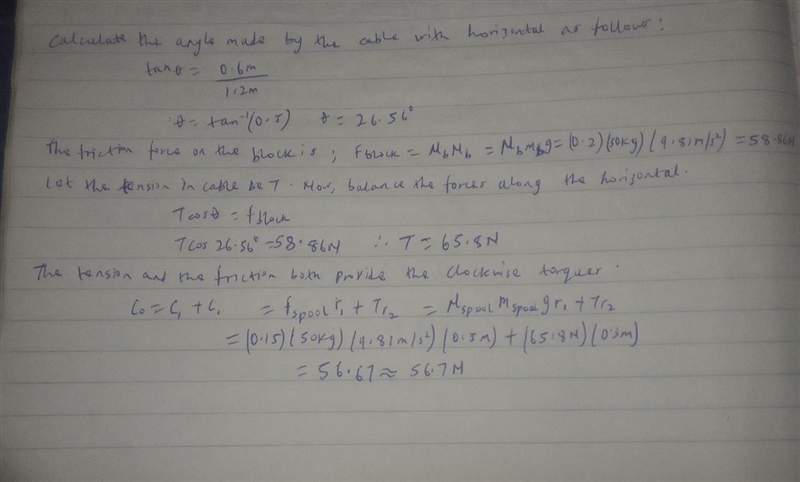 Calculate the angle made by the cable with horizontal as follows:
tanθ = 0.6m / 1.2m
θ = tan⁻¹(0.5) θ = 26.56°
The friction force on the block is; Fblock = μbNb = μbmbg = (0.2)(30kg)(9.81m/s²) = 58.86N
Let the tension in cable be T. Now, balance the forces along the horizontal.
Tcosθ = fblock
Tcos 26.56° = 58.86N ∴ T = 65.8N
The tension and the friction both provide the clockwise torques.
C₀ = C₁ + C₁ = fspool r₁ + Tr₂ = μspool mspool g r₁ + Tr₂
= (0.15)(50kg)(9.81m/s²)(0.5m) + (65.8N)(0.3m)
= 56.67 ≈ 56.7N